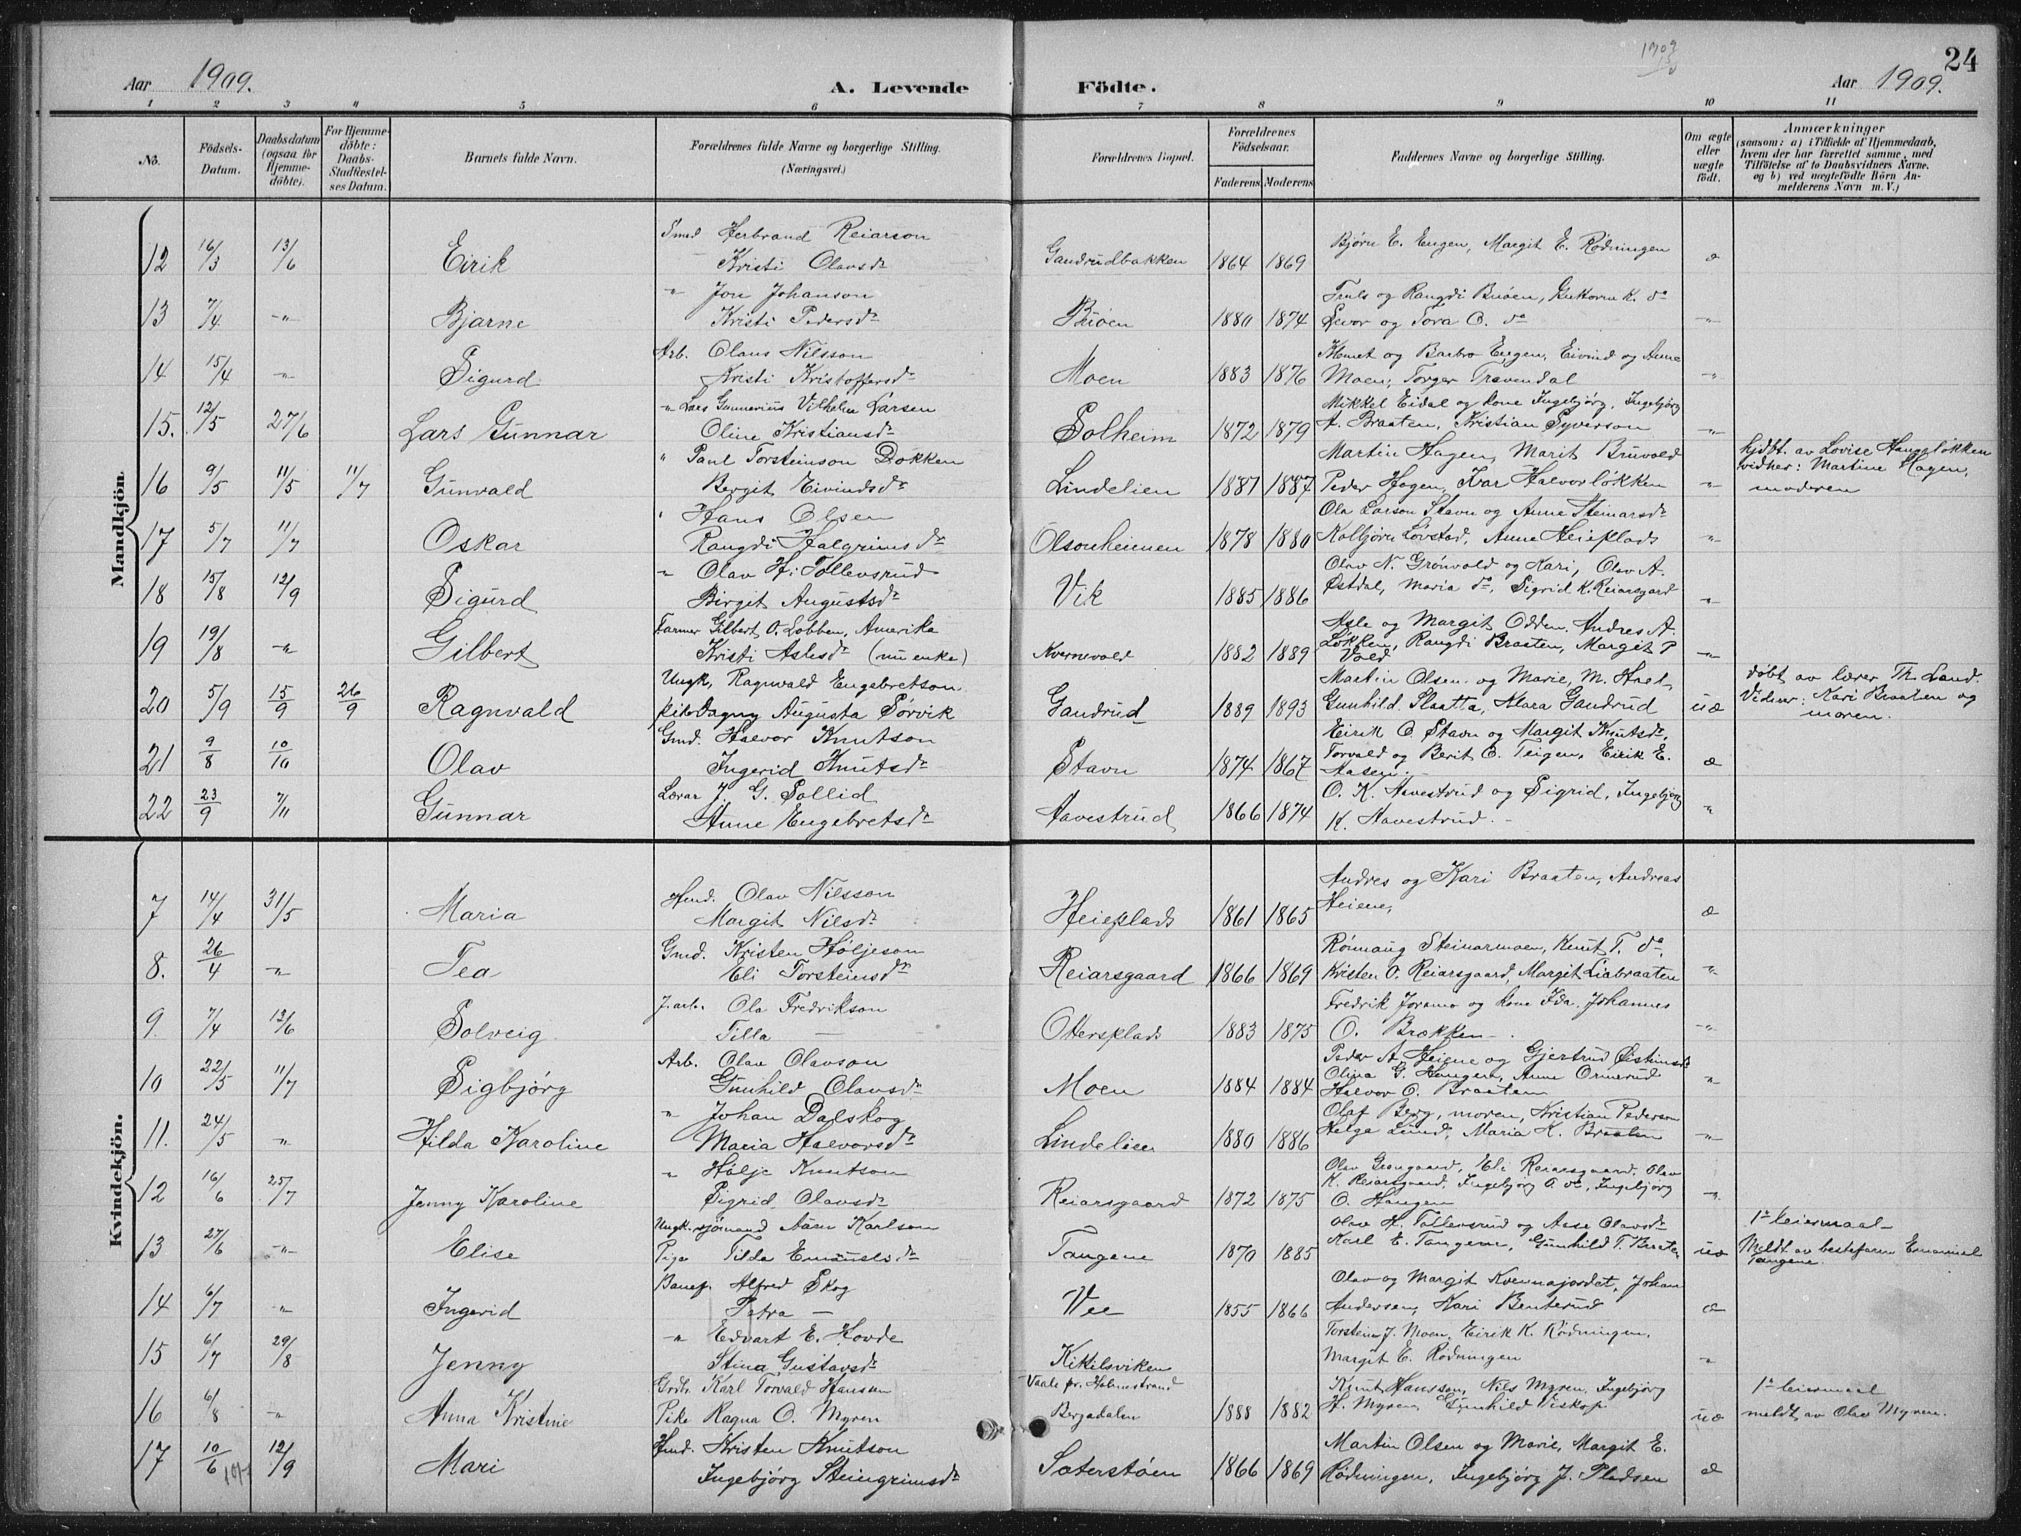 1909
24
Aar 1909. A. Levende Födte. Aar 1909.
1 2 3 4 5 6 7 8 9 10 11
No. Födsels-Datum. Daabsdatum (ogsaa for Hjemme-döbte). For Hjemme-döbte: Daabs-Stadfæstel-ses Datum. Barnets fulde Navn. Forældrenes fulde Navne og borgerlige Stilling. (Næringsvei.) Forældrenes Bopæl. Forældrenes Födselsaar. Faderens Moderens Faddernes Navne og borgerlige Stilling. Om ægte eller uægte födt. Anmærkninger
(saasom: a) i Tilfælde af Hjemmedaab,
hvem der har forrettet samme, med
Tilföielse af to Daabsvidners Navne.
og b) ved uægtefödte Börn An-
melderens Navn m. V.)
Mandkjön.
Smed Herbrand Reiarson Bjørn E. Engen, Margit E. Rødningen
12 16/3 13/6 Eirik Kristi Olavsdr Gandrudbakken 1864 1869 æ
" Jon Johanson Truls og Rangdi Buøen, Guttorm K. do
13 7/4 -"- Bjarne Kristi Pedersdr Buøen 1880 1874 Levor og Tora O. do -"-
Arb. Olaus Nilsson Knut og Barbro Engen, Eivind og Anne
14 15/4 -"- Sigurd Kristi Kristoffersdr Moen 1883 1876 Moen, Torger Travendal -"-
" Lars Gunnerius Vilhelm Larsen Mikkel Eidal og kone Ingebjørg, Ingebjørg
15. 12/5 27/6 Lars Gunnar Oline Kristiansdr Solheim 1872 1879 A. Braaten, Kristian Syverson -"-
" Paul Torsteinson Dokken Martin Hagen, Marit Bruvold hjdt. av Lovise Haugeløkken
16 9/5 11/5 11/7 Gunvald Bergit Eivindsdr Lindelien 1887 1887 Peder Hagen, Ivar Halvorsløkken " vidner: Martine Hagen,
moderen
" Hans Olsen Ola Larson Stavn og Anne Steinarsdr
17 5/7 11/7 Oskar Rangdi Halgrimsdr Olsonheimen 1878 1880 Kolbjørn Løvstad, Anne Heieplads "
" Olav H. Tollevsrud Olav N. Grønvold og Kari, Olav A.
18 15/8 12/9 Sigurd Birgit Augustsdr Vik 1885 1886 Østdal, Maria do, Sigrid K. Reiarsgard -"-
Farmer Gilbert O. Lobben, Amerika Asle og Margit Odden, Andres A.
19 19/8 -"- Gilbert Kristi Aslesdr (nu enke) Kvernevold 1882 1889 Løkken, Rangdi Braaten, Margit P -"-
Vold
Ungk. Ragnvald Engebretson Martin Olsen og Marie, M. døbt av lærer Th. Land.
20 5/9 15/9 26/9 Ragnvald pike Dagny Augusta Sørvik Gandrud 1889 1893 Gunhild Slaatta, Klara Gandrud uæ Vidner: Kari Braaten og
moren.
Gmd. Halvor Knutson Eirik O. Stavn og Margit Knutsdr,
21 9/8 10/10 Olav Ingerid Knutsdr Stavn 1874 1867 Torvald og Berit O. Teigen, Eirik E. æ
Aasen.
Lærar J. G. Sollid O. K. Aavestrud og Sigrid, Ingebjørg
22 23/9 7/11 Gunnar Anne Engebretsdr Aavestrud 1866 1874 K. Aavestrud. "
Kvindekjön.
Hmd. Olav Nilsson Andres og Kari Braaten, Andreas
7 14/4 31/5 Maria Margit Nilsdr Heieplads 1861 1865 Heiene, æ
Gmd. Kristen Høljeson Rønnaug Steinarmoen, Knut T. do,
8. 26/4 -"- Tea Eli Torsteinsdr Reiarsgaard 1866 1869 Kristen O. Reiarsgaard, Margit Liabraaten "
J.arb. Ola Fredrikson Fredrik Joramo og kone Ida, Johannes
9. 7/4 13/6 Solveig Tilla — Ottersplads 1883 1875 O. Brækken. -"-
Arb. Olav Olavson Peder A. Heiene og Gjertrud Østinsdr
10 22/5 11/7 Sigbjørg Gunhild Olavsdr Moen 1884 1884 Olina G. Haugen, Anne Ormerud "
Halvor O. Braaten
" Johan Dalskog Olaf Berg, moren, Kristian Pederson
11. 24/5 " Hilda Karoline Maria Halvorsdr Lindelien 1880 1886 Helge Lund, Maria K. Braaten -"-
" Hølje Knutson Olav Grøngaard, Eli Reiarsgaard, Olav
12 16/6 25/7 Jenny Karoline Sigrid Olavsdr Reiarsgaard 1872 1875 K. Reiarsgaard, Ingebjørg O. do, Ingebjørg -"-
O. Haugen
Ungk. sjømand Karlson Olav H. Tollevsrud og Aase Olavsdr 1ste leiermaal
13 27/6 -"- Elise Pige Tilda Tangene 1870 1885 Karl E. Tangene, Gunhild T. Braaten uæ Meldt av bestefaren Emanuel
Tangene.
Banef. Alfred Skog Olav og Margit Kvennajordet, Johan
14 6/7 " Ingerid Petra — Vee 1855 1866 Andersen, Kari Benterud æ
" Edvart E. Hovde Torstein J. Moen, Eirik K. Rødningen,
15 6/7 29/8 Jenny Stina Gustavsdr Kittilsviken Margit E. Rødningen "
Karl Torvald Hansen Vaale pr. Holmestrand Knut Hansson, Nils Myren, Ingebjørg 1ste leiermaal
16 6/8 -"- Anna Kristine Pike Ragna O. Myren Bergadalen 1888 1882 H. Myren, Gunhild Viskop uæ meldt av Olav Myren.
Hmd. Kristen Knutson Martin Olsen og Marie, Margit E.
17 10/6 12/9 Mari Ingebjørg Steingrimsdr Sæterstøen 1866 1869 Rødningen, Ingebjørg J. Pladsen æ